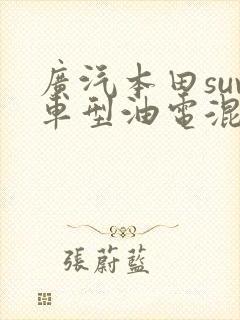 廣汽本田su
車型油電混
張蔚藍